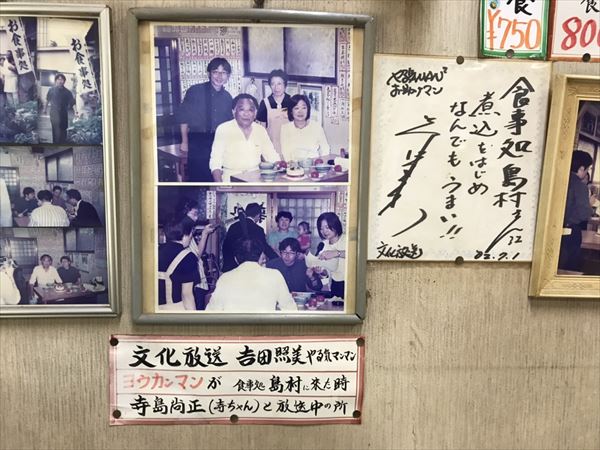 お食事処
お食事処
食
¥750
食
800
やる気MAN²
お助けマン
食事処 島村さん江
煮込をはじめ
なんでもうまい!!
文化放送
文化放送 吉田照美やる気マンマン
ヨウカンマンが 食事処 島村に来た時
寺島尚正(寺ちゃん)と放送中の所